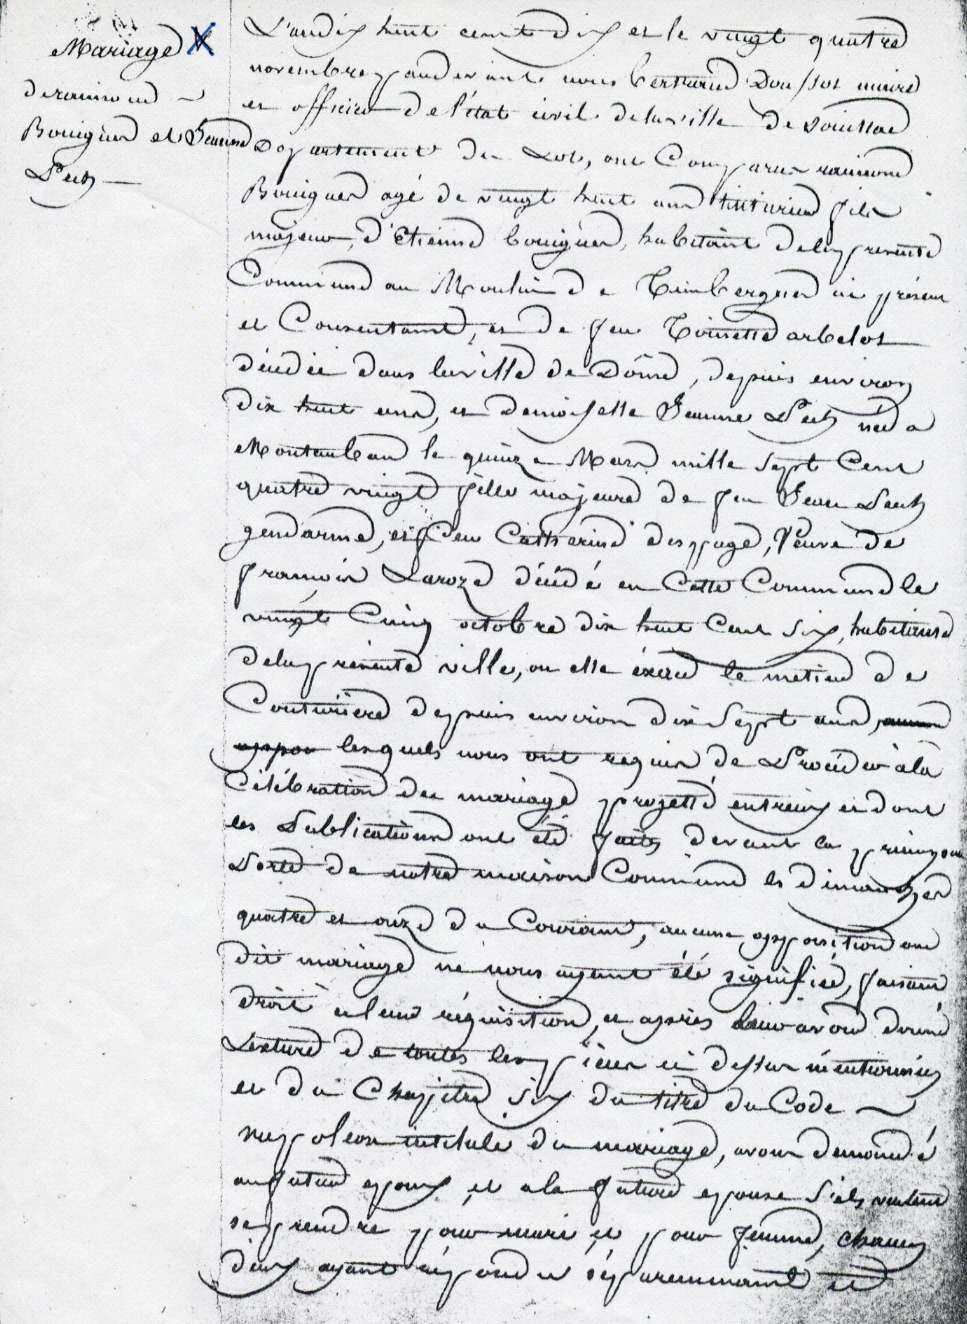 Mariage
de raimond
Bouigues et Jeanne
Pech
L'an dix huit cent dix et le vingt quatre
novembre pardevant nous Bertrand Doussot maire
et officier de l'état civil de la ville de Souillac
Departement du Lot, ont Comparu raimond
Bouigues agé de vingt huit ans fils
majeur, d'Etienne bouigues, habitant de la presente
Commune au Moulin de ci présent
et Consentant, et de feu Toinette darbelot
décédée dans la ville de Dôme, depuis environ
dix huit ans, et demoiselle Jeanne Pech née a
Montauban le quinze Mars mille Sept Cent
quatre vingt fille majeure de feu Jean Pech
gendarme, et feu Catherine despage, Veuve de
françois Laroze décédé en Cette Commune le
vingt Cinq octobre dix huit Cent Six, habitante
de la présente ville, ou elle éxerce le metier de
Couturiere depuis environ dix Sept ans,
lesquels nous ont requis de Proceder à la
Célébration du mariage projetté entreux et dont
les Publications ont été faites devant la principale
Porte de notre maison Commune les dimanches
quatre et onze du Courant, aucune opposition au
dit mariage ne nous ayant été signifiée, faisant
droit à leur réquisition, et après leur avoir donné
Lecture de toutes les pièces ci dessus mentionnées
et du Chapitre Six du titre du Code
napoléon intitulé du mariage, avons demandé
au futur epoux, et a la future epouse S'ils veulent
se prendre pour mari et pour femme, chacun
d'eux ayant répondu séparemment et